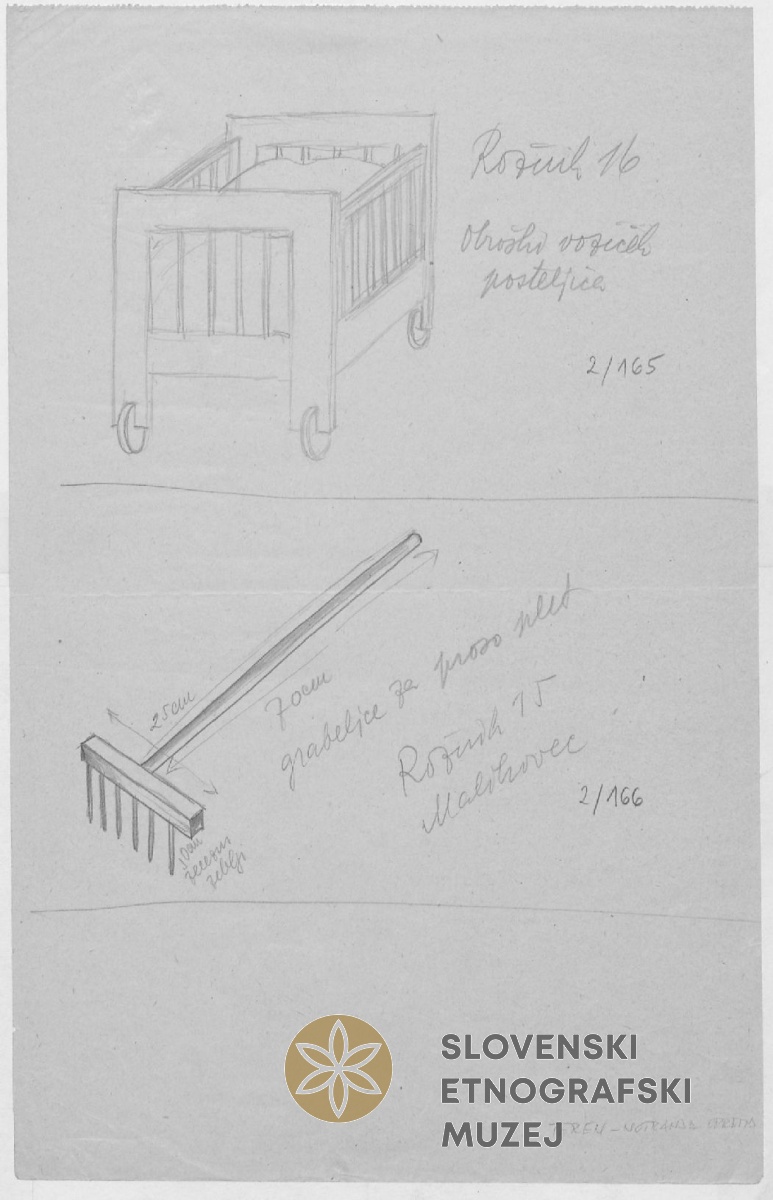 Rožnik 16
Otroški voziček
posteljica
2/165
25cm
70cm
grabeljce za proso plet
Rožnik 15
Malihovec
2/166
10cm
železni
žeblji
SLOVENSKI
ETNOGRAFSKI
MUZEJ
TEREN - NOTRANJA